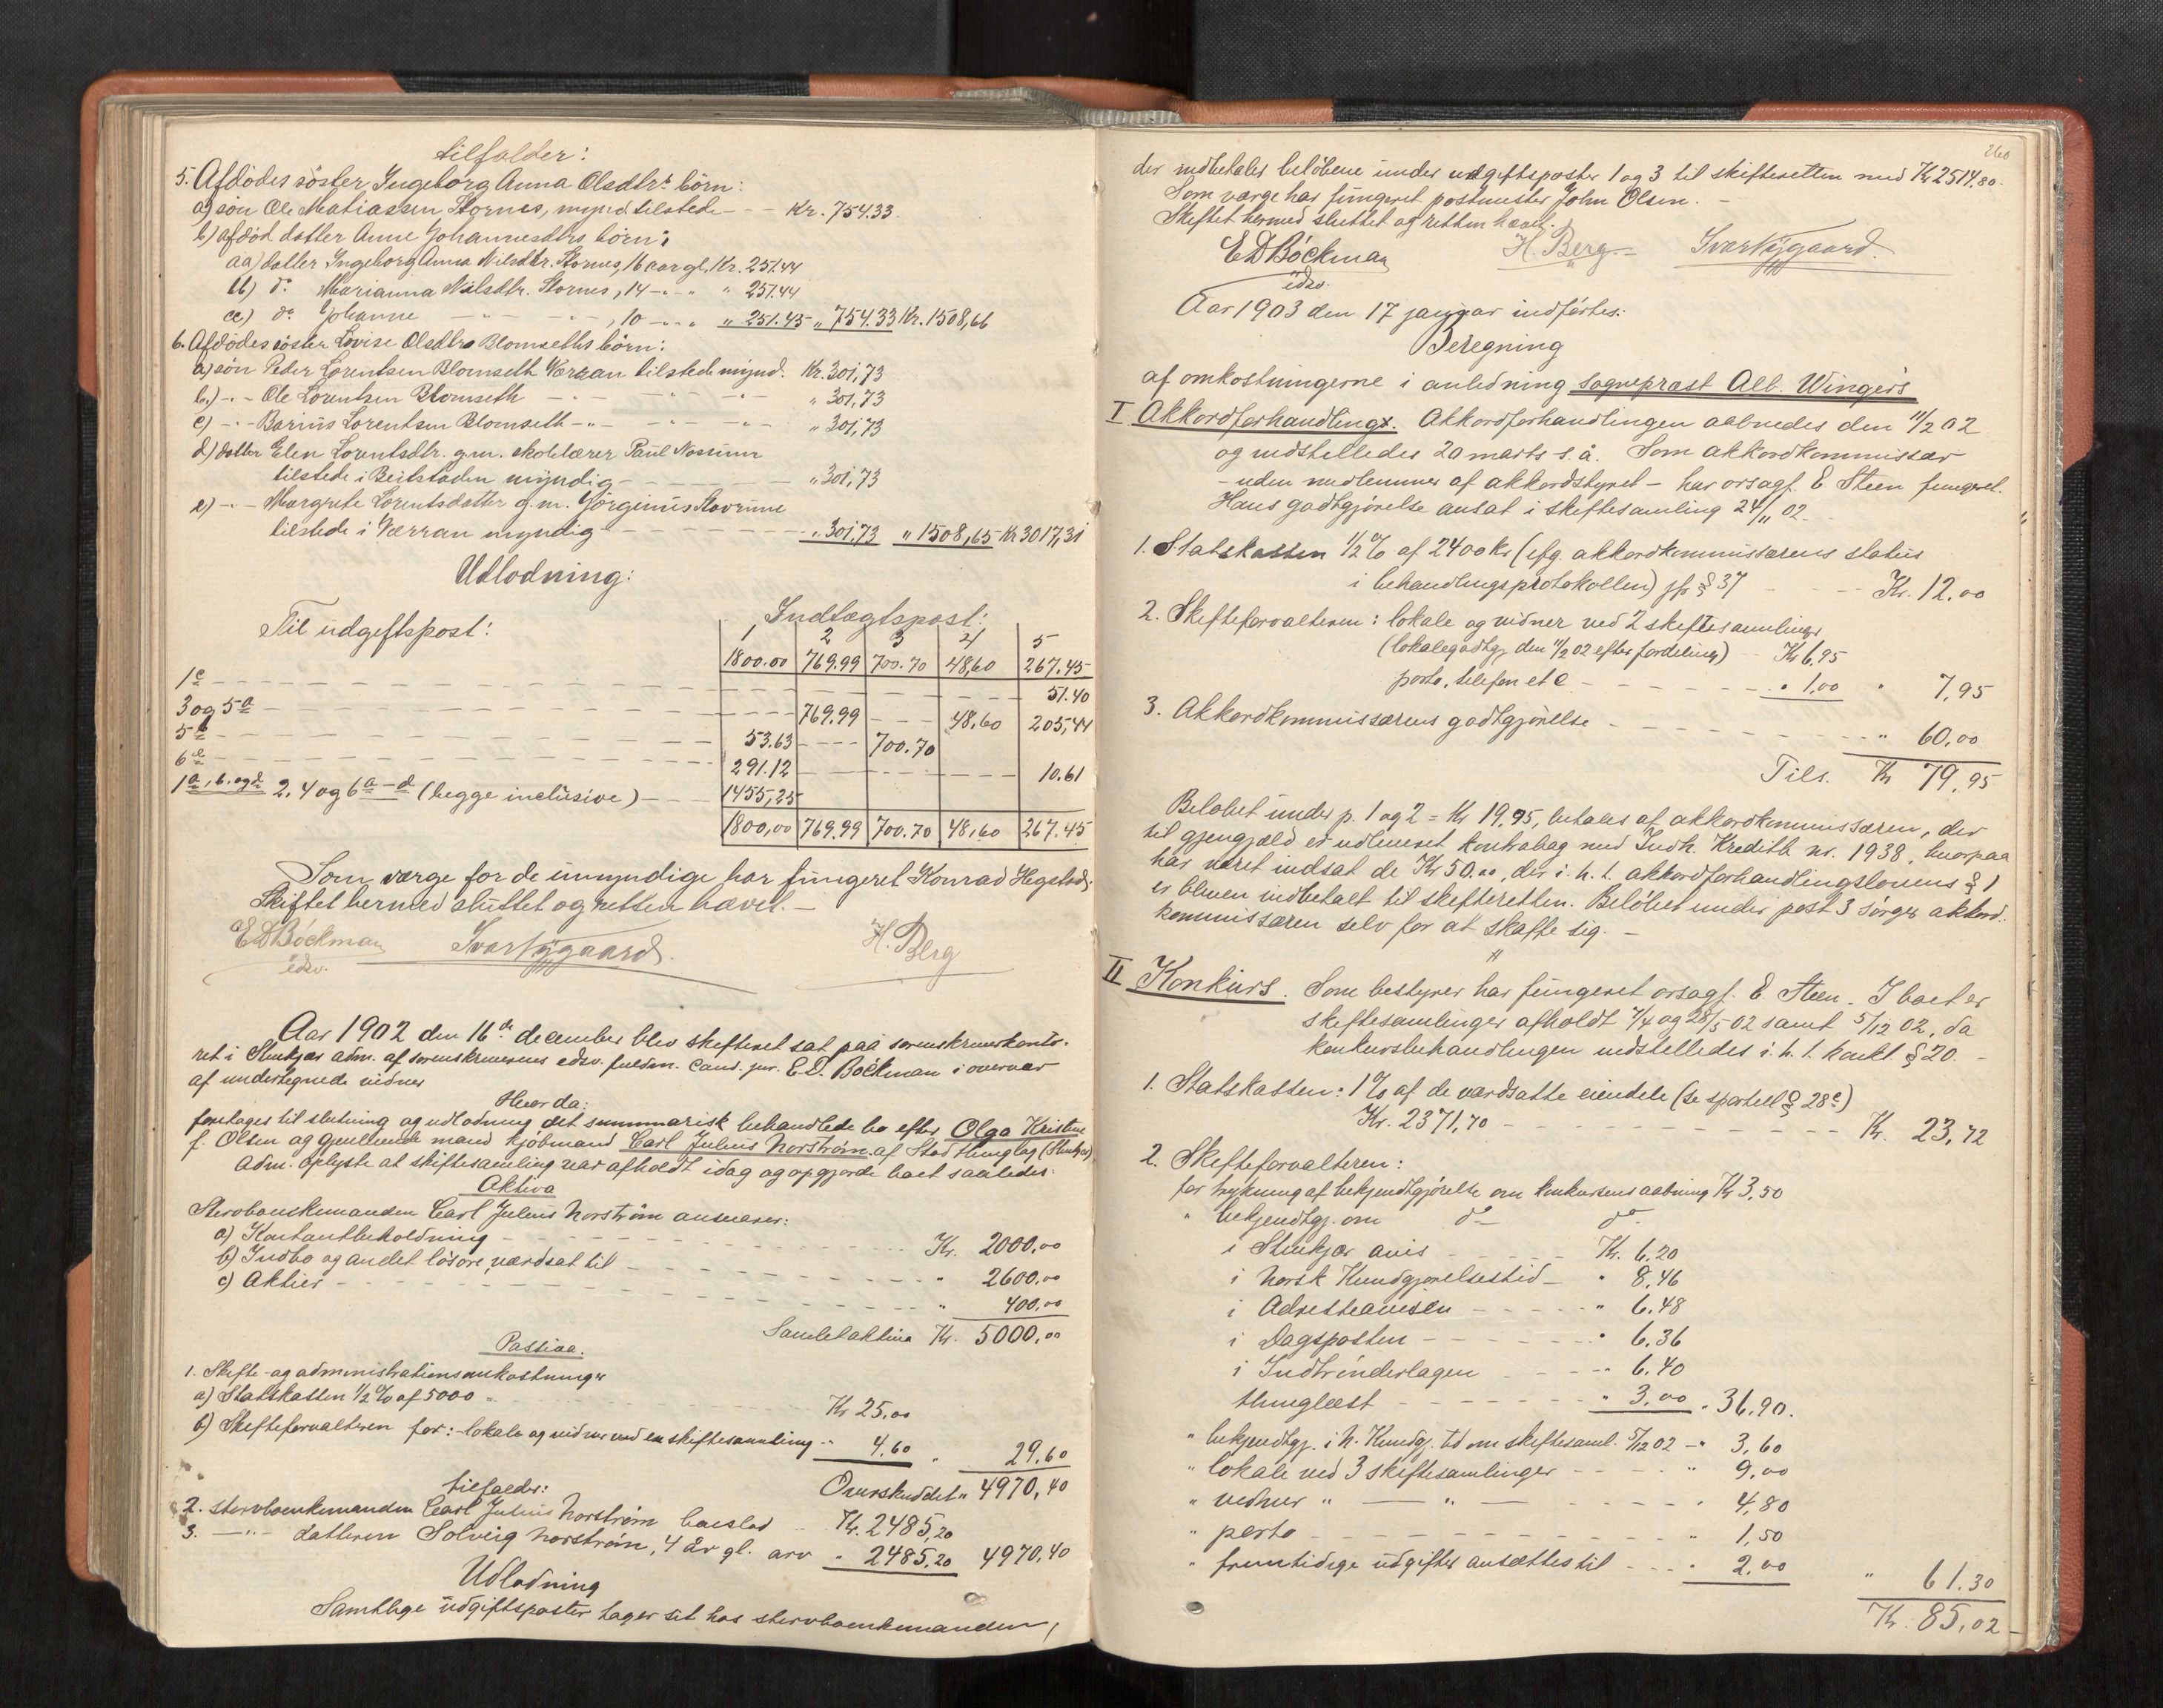 tilfalder:
5. Afdödes söster Ingeborg Anna Olsdtrs börn:
a) sön Ole Matiassen Stornes, mynd. tilstede - - Kr. 754.33.
b) afdöd datter Anne Johannesdtrs börn:
aa) datter Ingeborg Anna Nilsdtr. Stornes, 16 aar gl. Kr. 251.44
bb) do Marianna Nilsdtr. Stornes, 14 - " - " 251.44
cc) do Johanne - " - , 10 - " - " 251.45 " 754.33 Kr. 1508,66
6. Afdödes söster Lovise Olsdtrs Blomseths börn:
a) sön Peder Lorentsen Blomseth Værran tilstede mynd. Kr. 301,73
b.) - " - Ole Lorentsen Blomseth - " - - " - - " - " 301,73
c) - " - Barius Lorentsen Blomseth - " - - " - - " - " 301,73
d) datter Elen Lorentsdtr. g.m. skolelærer Paul
tilstede i Beitstaden myndig - - - " 301,73
e) - " - Margrete Lorentsdatter g.m. Jörginus
tilstede i Værran myndig - - - " 301.73 " 1508,65 Kr 3017,31
Udlodning:
Til udgeftspost: Indtægtspost:
1 2 3 4 5
1800.00 769.99 700.70 48,60 267.45
1c - - - 51.40
3 og 5a - - - 769.99 - - - 48.60 205,44
5b - - - 53.63 - - - 700.70
6e - - - 291.12 - - - 10.61
1a, b. og d. 2. 4 og 6a-d (begge inclusive) - - 1455,25
1800,00 769.99 700.70 48,60 267.45
Som værge for de umyndige har fungeret Konrad Hegstad.
Skiftet hermed sluttet og retten hævet. -
E D Böckman Ivar Nygaard. H. Berg
edsv.
Aar 1902 den 16de december blev skifteret sat paa sorenskriverkonto-
ret i Stenkjær adm. af sorenskriverens edsv. fuldm. cand. jur. E. D. Böckman i overvær
af undertegnede vidner
Hvor da:
foretages til slutning og udlodning det summarisk behandlede bo efter Olga Kristine
f. Olsen og gjenlevende mand kjöbmand Carl Julius Norström af Stod thinglag (Stenkjær)
Adm. oplyste at skiftesamling var afholdt idag og opgjorde boet saaledes:
Aktiva
Stervboenkemanden Carl Julius Norström ansvarer:
a) Kontantbeholdning - - - Kr. 2000,00
b) Indbo og andet lösöre, værdsat til - - - " 2600,00
c) Aktier - - - " 400,00
Samlet aktiva Kr. 5000,00
Passiva.
1. Skifte- og administrationsomkostninger
a) Statskassen 1/2 % af 5000 = Kr 25,00
b) Skifteforvalteren for: - lokale og vidner ved en skiftesamling - " 4,60 " 29,60
tilfalder: Overskuddet " 4970,40
2. stervboenkemanden Carl Julius Norström boeslod - Kr. 2485,20
3. - " - datteren Solveig Norström, 4 år gl. arv " 2485,20 4970,40
Udlodning
Samtlige udgiftsposter tages ut hos stervboenkemanden,
260
der indbetaler belöbene under udgiftsposter 1 og 3 til skifteretten med Kr 2514,80.
Som værge har fungeret postmester John Olsen. -
Skiftet hermed sluttet og retten hævet.
E D Böckman H. Berg Ivar Nygaard.
edsv.
Aar 1903 den 17 januar indførtes:
Beregning
af omkostningerne i anledning sogneprest Alb. Wingers
I Akkordforhandling. Akkordforhandlingen aabnedes den 11/2 02
og indstilledes 20 marts s. å. Som akkordkommissær
- uden medlemmer af akkordstyret - har orsagf. E. Steen fungeret.
Hans godtgjörelse ansat i skiftesamling 24/11 02.
1. Statskassen 1/2 % af 2400 kr (efg. akkordkommissærens status
i behandlingsprotokollen) jfr § 37 - - - Kr. 12,00
2. Skifteforvalteren: lokale og vidner ved 2 skiftesamlinger
(lokalegodtgj. den 11/2 02 efter fordeling) - Kr 6,95
porto, telefon etc - - - " 1,00 " 7,95
3. Akkordkommissærens godtgjörelse - - - " 60,00
Tils. Kr 79,95
Beløbet under p. 1 og 2 = Kr 19,95, betales af akkordkommissæren, der
til gjengjæld er udleveret kontrabog med Indh. Kreditb. nr. 1938, hvorpaa
har været indsat de Kr 50,00, der i. h. t. akkordforhandlingslovens § 1
er bleven indbetalt til skifteretten. Beløbet under post 3 sørger akkord-
kommissæren selv for at skaffe sig. -
"
II Konkurs. Som bestyrer har fungeret orsagf. E. Steen. I boet er
skiftesamlinger afholdt 7/4 og 28/5 02 samt 5/12 02, da
konkursbehandlingen indstilledes i. h. t. konkl. § 20. -
1. Statskassen: 1 % af de værdsatte eiendele (se sportell § 28c)
Kr. 2371,70 - - - Kr. 23,72
2. Skifteforvalteren:
for trykning af bekjendtgjörelse om konkursens aabning Kr 3,50
" bekjendtgj. om do do
i Stenkjær avis - - - Kr. 6,20
i Norsk Kundgjørelsestid - " 8,46
i Adresseavisen - - - " 6,48
i Dagsposten - - - " 6,36
i Indtrønderlagen - - " 6,40
thinglæst - - - " 3,00 " 36,90.
" bekjendtgj. i N. Kundgj. tid om skiftesaml. 5/12 02 - " 3,60
" lokale ved 3 skiftesamlinger - - - " 9,00
" vidner " - " - - - " 4,80
" porto - - - " 1,50
" fremtidige udgifter ansættes til - - - " 2,00 " 61,30
Kr. 85,02